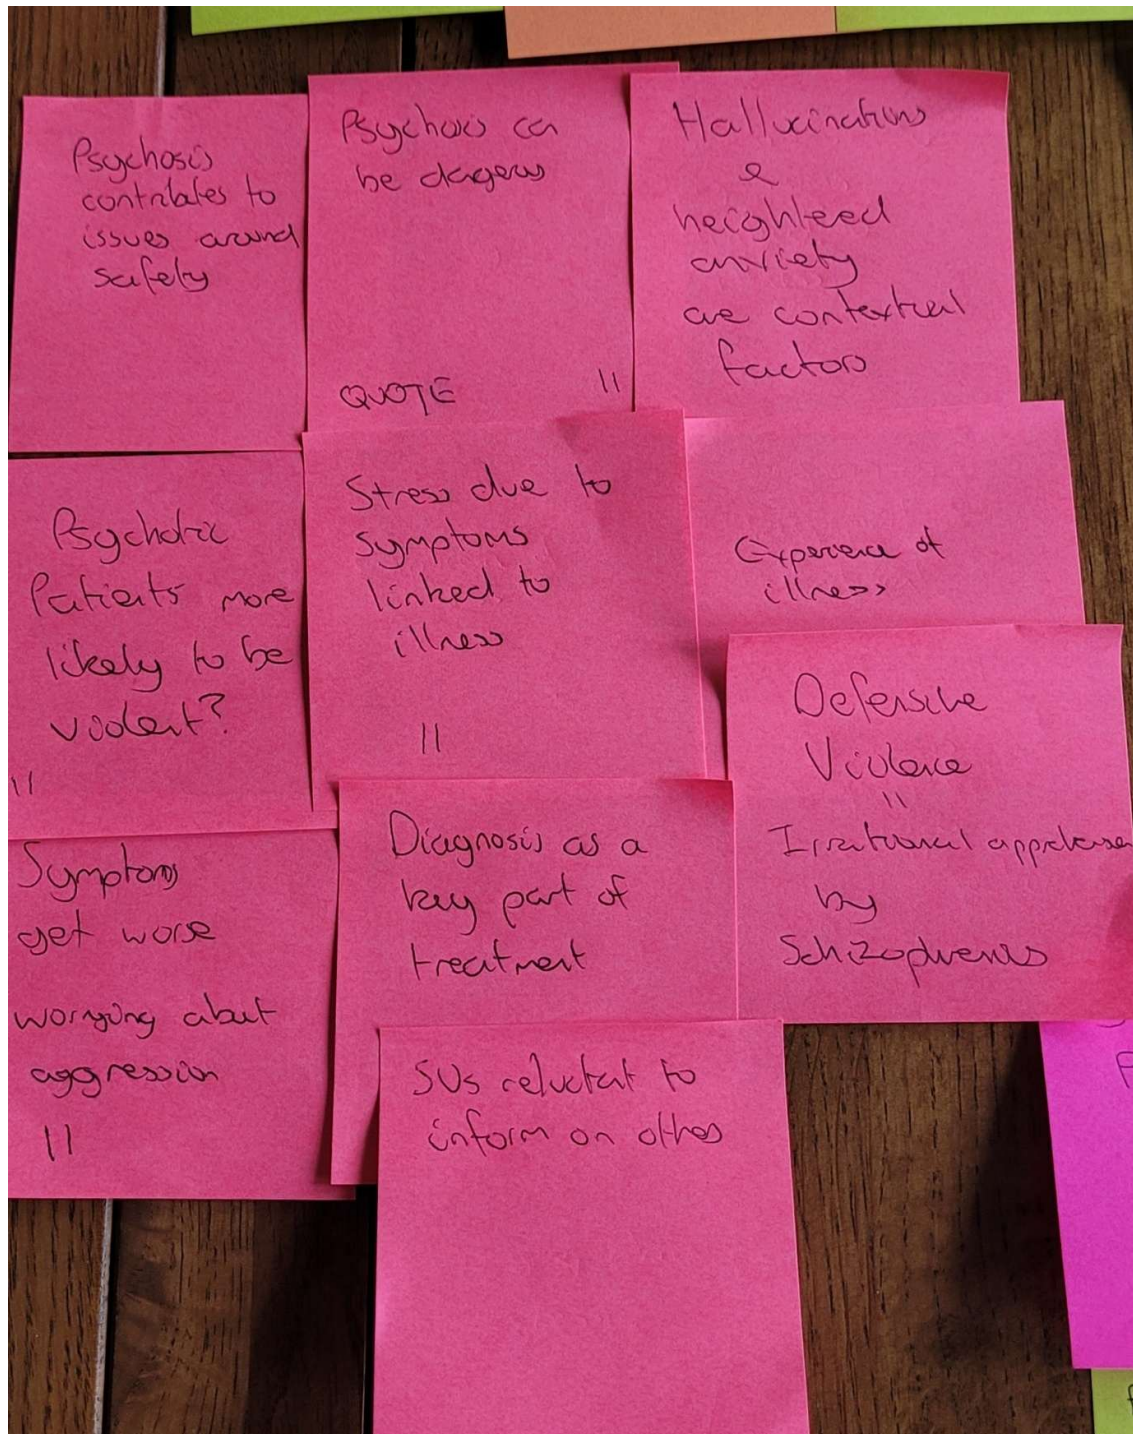 Psychosis
contributes to
issues around
safety
Psychosis can
be dangerous
QUOTE 11
Hallucinations
&
heightened
anxiety
are contextual
factors
Psychotic
Patients more
likely to be
violent?
11
Stress due to
symptoms
linked to
illness
11
Experience of
illness
Defensive
Violence
"
Irrational
by
Schizophrenics
Symptoms
get worse
worrying about
aggression
11
Diagnosis as a
key part of
treatment
SUs reluctant to
inform on others